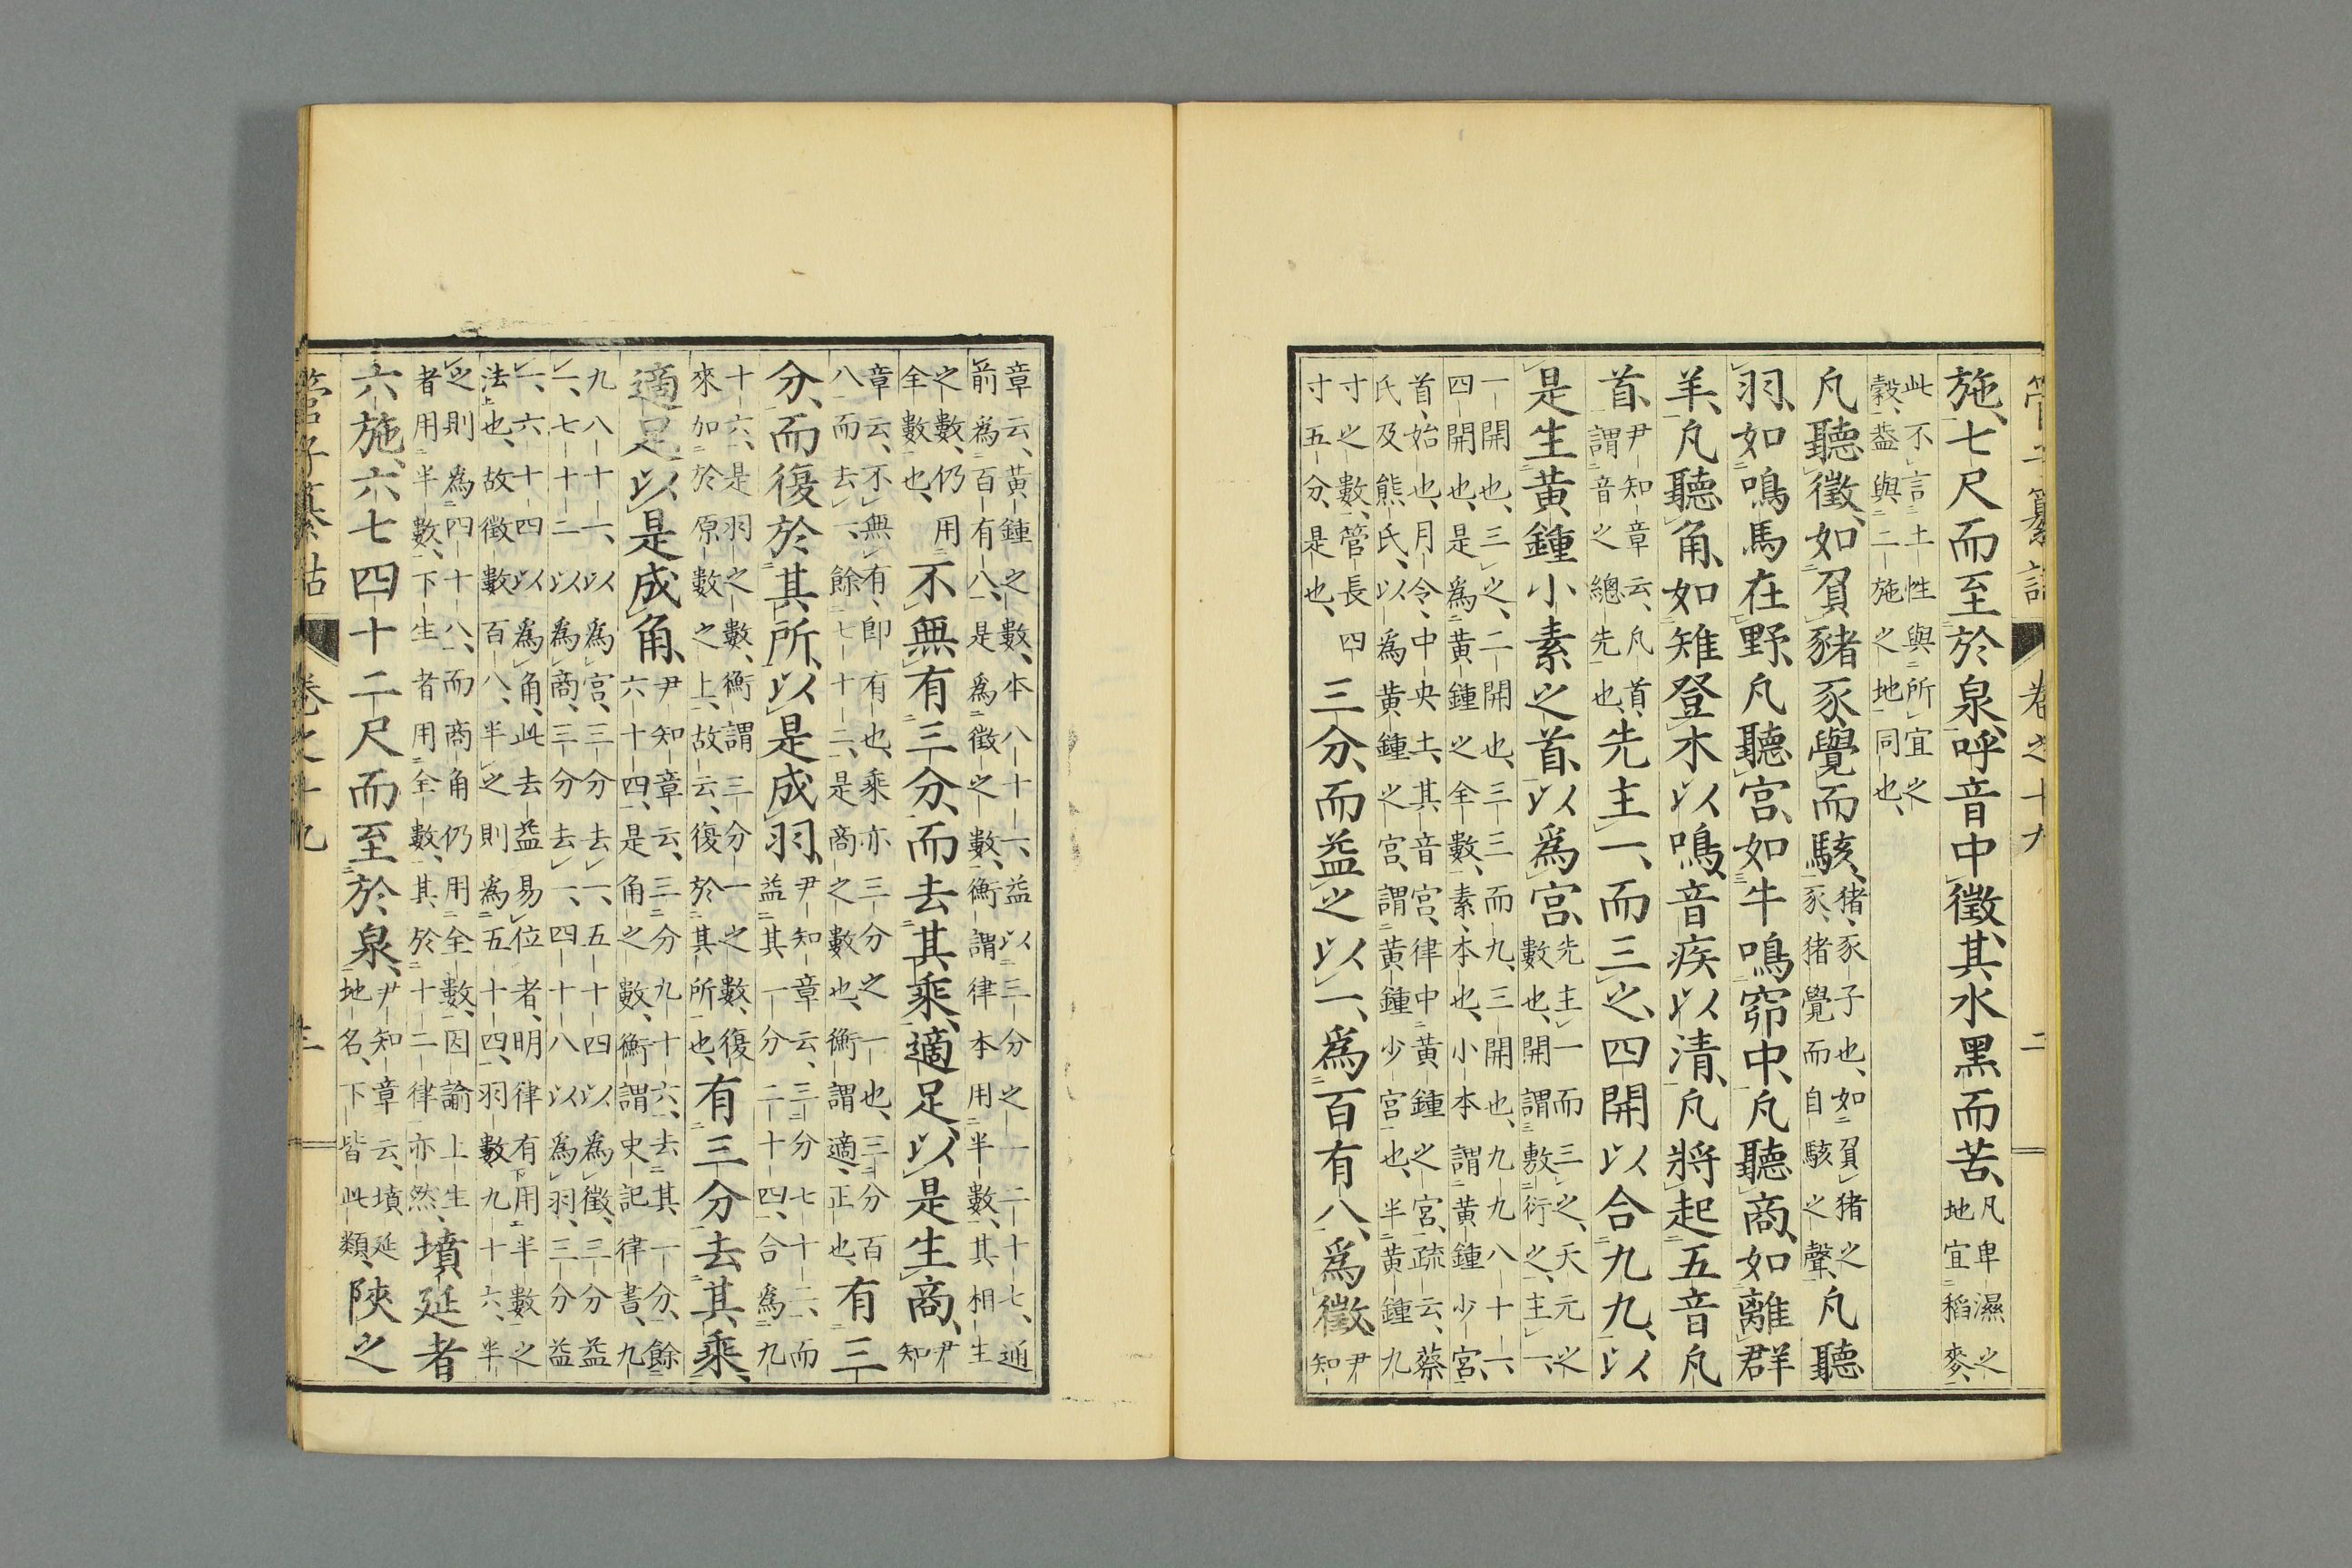 管子纂詁 卷之十九 二
施、七尺而至於泉、呼音中徵、其水黑而苦、
凡卑濕之
地宜稻麥、
此不言土性與所宜之
穀、蓋與二施之地同也、
凡聽徵、如負豬豕、覺而駭、
猪、豕子也、如負猪之
豕、猪覺而自駭之聲、
凡聽
羽、如鳴馬在野、凡聽宮、如牛鳴窌中、凡聽商、如離群
羊、凡聽角、如雉登木以鳴、音疾以清、凡將起五音凡
首、
尹知章云、凡首、
謂音之總先也、
先主一、而三之、四開以合九九、以
是生黃鍾小素之首、以爲宮、
先主一而三之、天元之
數也、開謂敷衍之、主一、
一開也、三之、二開也、三三而九、三開也、九九八十一、
四開也、是爲黃鍾之全數、素、本也、小本謂黃鍾少宮、
首、始也、月令、中央土、其音宮、律中黃鍾之宮、疏云、蔡
氏及熊氏、以爲黃鍾之宮、謂黃鍾少宮也、半黃鍾九
寸之數、管長四
寸五分、是也、
三分、而益之以一、爲百有八、爲徵、
尹
知
章云、黃鍾之數、本八十一、益以三分之一二十七、通
前爲百有八、是爲徵之數、衡謂律本用半數、其相生
之數、仍用
全數也、
不無有三分、而去其乘、適足、以是生商、
尹
知
章云、不無有、卽有也、乘亦三分之一也、三分百
八而去一、餘七十二、是商之數也、衡謂適、正也、
有三
分、而復於其所、以是成羽、
尹知章云、三分七十二、而
益其一分二十四、合爲九
十六、是羽之數、衡謂三分一之數、復
來加於原數之上、故云、復於其所也、
有三分去其乘、
適足以是成角、
尹知章云、三分九十六、去其一分、餘
六十四、是角之數、衡謂史記律書、九
九八十一、以爲宮、三分去一、五十四以爲徵、三分益
一、七十二以爲商、三分去一、四十八以爲羽、三分益
一、六十四以爲角、此去益易位者、明律有用半數之
法也、故徵數百八、半之則爲五十四、羽數九十六、半
之則爲四十八、而商角仍用全數、因論上生
者用半數、下生者用全數、其於十二律亦然、
墳延者
六施、六七四十二尺而至於泉、
尹知章云、墳延
地名、下皆此類、
陝之
管子纂詁 卷之十九 三